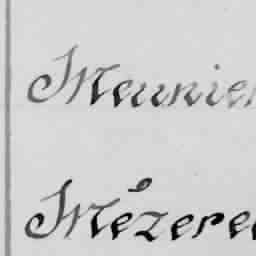 Meunier
Mézere